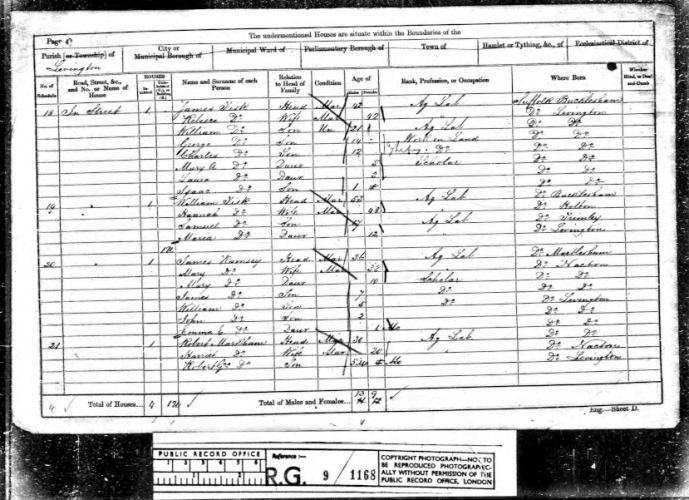 The undermentioned Houses are situate within the Boundaries of the
Page 4
Parish [or Township] of
City or Municipal Borough of
Municipal Ward of
Parliamentary Borough of
Town of
Hamlet or Tything, &c., of
Ecclesiastical District of
Levington
No. of Schedule
Road, Street, &c., and No. or Name of House
HOUSES
Name and Surname of each Person
Relation to Head of Family
Condition
Age of
Rank, Profession, or Occupation
Where Born
Whether Blind, or Deaf-and-Dumb
Males Females
18 In Street 1 James Fisk Head Mar 42 Ag Lab Suffolk Bucklesham
Rebecca Do Wife Mar 42 Do Levington
William Do Son Un 21 Ag Lab Do Do
George Do Son 14 Work on Land Do Do
Charles Do Son 12 Do Do Do
Mary A Do Daur 5 Scholar Do Do
Laura Do Daur 2 Do Do
Isaac Do Son 1 Do Do
19 1 William Fisk Head Mar 52 Ag Lab Do Bucklesham
Hannah Do Wife Mar 48 Do Holton
Samuel Do Son 17 Ag Lab Do Trimley
Maria Do Daur 12 Do Levington
20 1 James Rumsey Head Mar 36 Ag Lab Do Martlesham
Mary Do Wife Mar Do Nacton
Mary Do Daur 10 Scholar Do Do
James Do Son 7 Do Do Do
William Do Son 5 Do Do Levington
John Do Son 2 Do Do
Emma E Do Daur 1 Mo Do Do
21 1 Robert Markham Head Mar Ag Lab Do Nacton
Harriet Do Wife Mar 20 Do Levington
Robert Do Son Mo
4 Total of Houses... 4 Total of Males and Females...
Eng.—Sheet D.
PUBLIC RECORD OFFICE
1 2 3 4 5 6
Reference:-
R.G. 9 / 1168
COPYRIGHT PHOTOGRAPH—NOT TO
BE REPRODUCED PHOTOGRAPHIC-
ALLY WITHOUT PERMISSION OF THE
PUBLIC RECORD OFFICE, LONDON